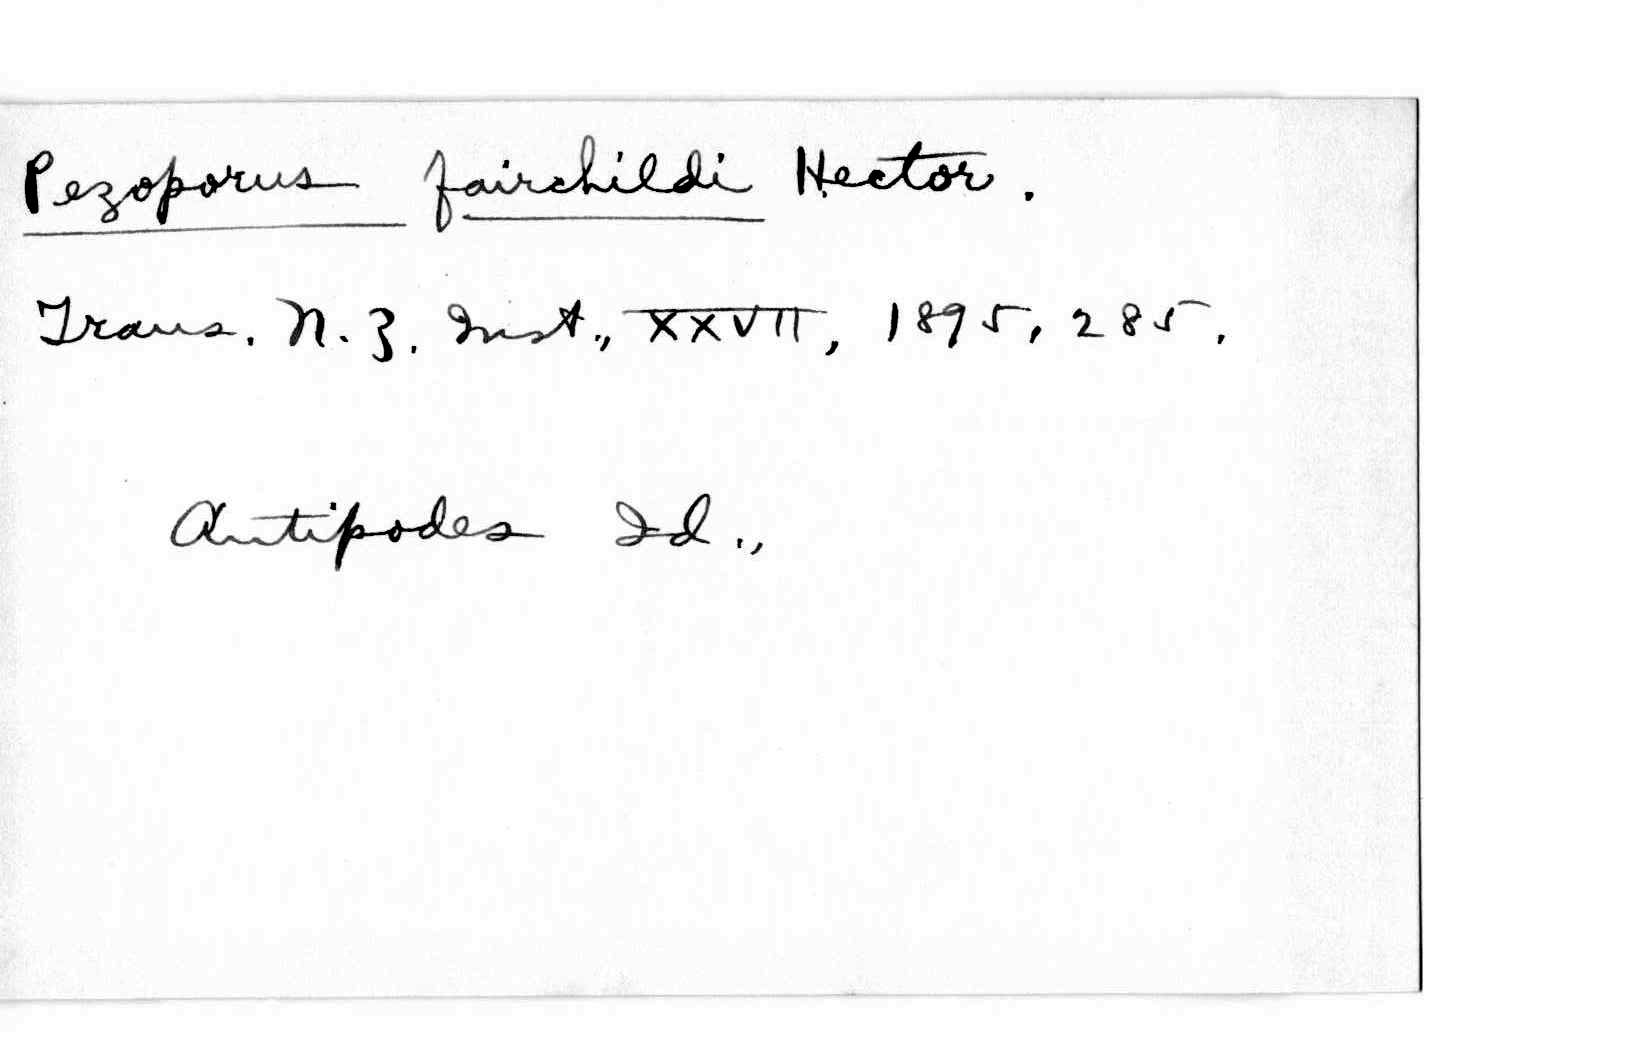 Pezoporus fairchildi Hector.
Trans. N. Z. Inst., XXVII, 1895, 285.
Antipodes Id.,